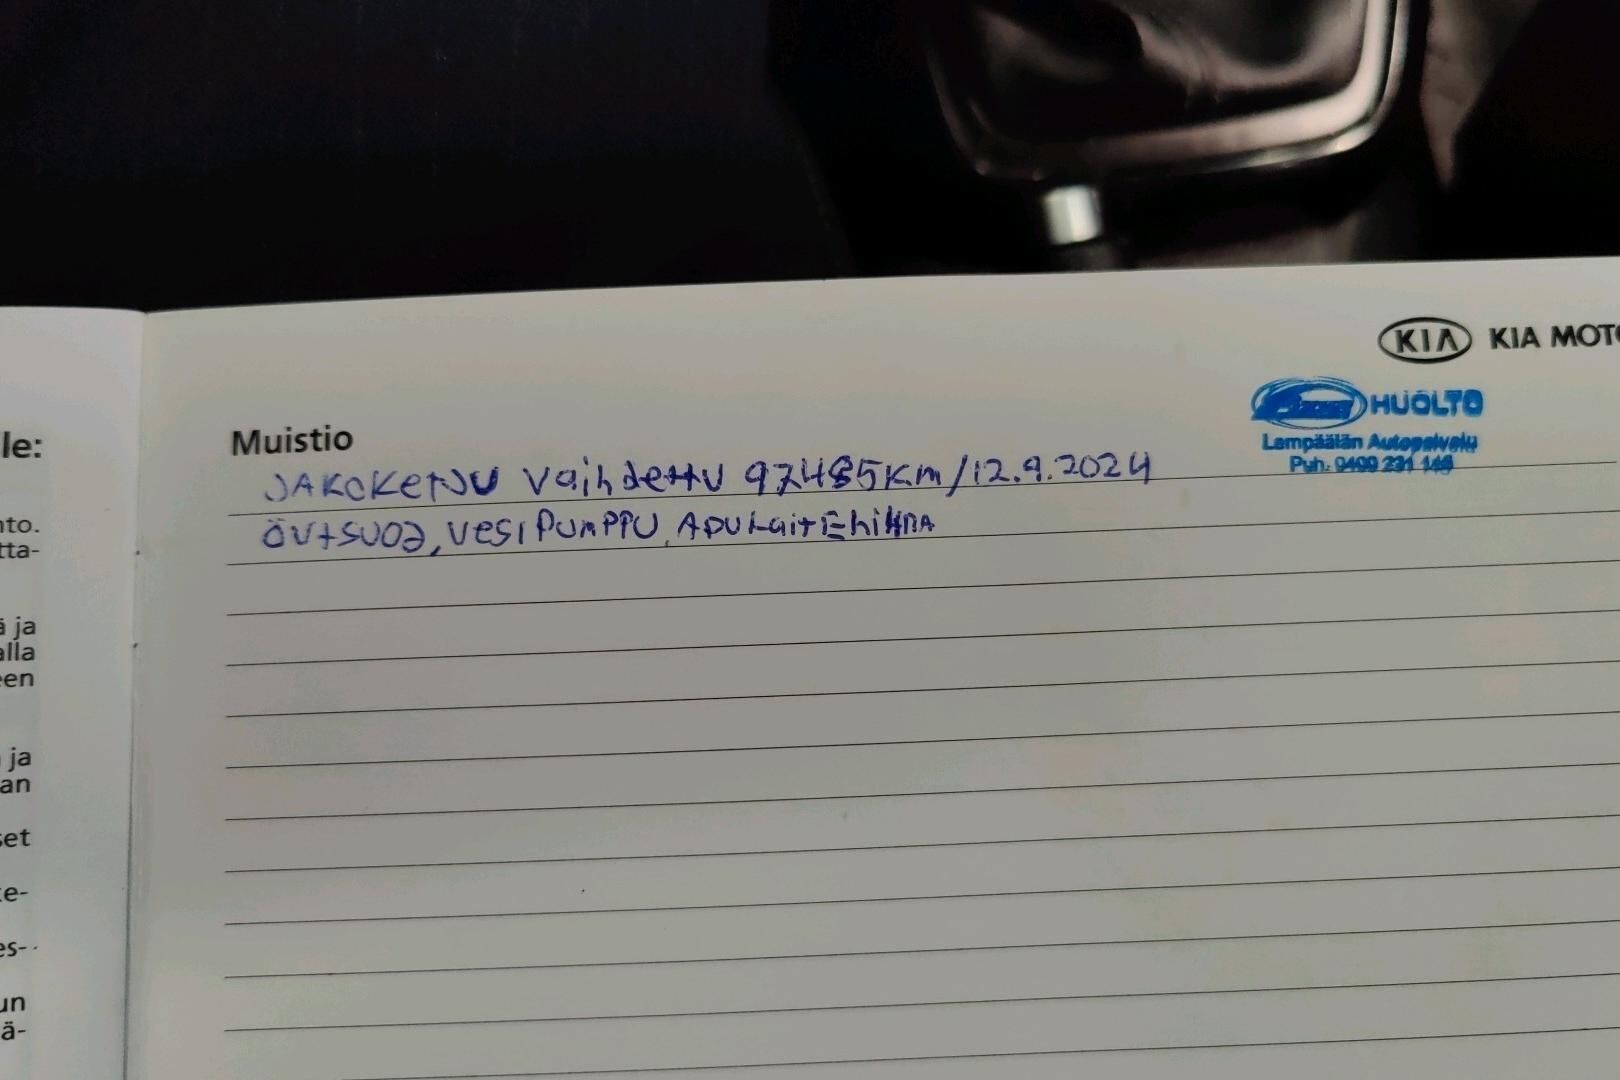 le:
nto.
tta-
ä ja
alla
een
ja
an
set
ke-
es-
un
ä-
KIA KIA MOTO
HUOLTO
Lempäälän Autopalvelu
Puh. 0400 231
Muistio
JAKOKETJU Vaihdettu 97485km/12.9.2024
ÖVTSUOD, VESIPUMPPU, APULaitEhihNA